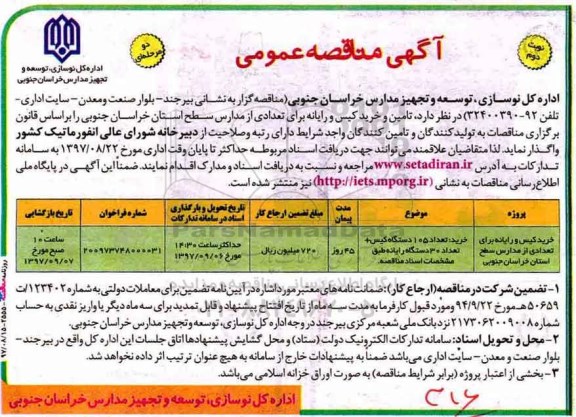 آگهی مناقصه عمومی
نوبت دوم
دو مرحله‌ای
اداره کل نوسازی، توسعه و
تجهیز مدارس خراسان جنوبی
اداره کل نوسازی، توسعه و تجهیز مدارس خراسان جنوبی (مناقصه گزار به نشانی بیرجند- بلوار صنعت ومعدن - سایت اداری-
تلفن ۹۲-۳۲۴۰۰۳۹۰) در نظر دارد، تامین و خرید کیس و رایانه برای تعدادی از مدارس سطح استان خراسان جنوبی را براساس قانون
برگزاری مناقصات به تولیدکنندگان و تامین کنندگان واجد شرایط دارای رتبه وصلاحیت از دبیرخانه شورای عالی انفورماتیک کشور
واگذار نماید. لذا متقاضیان علاقمند می توانند جهت دریافت اسناد مربوطه حداکثر تا پایان وقت اداری مورخ ۱۳۹۷/۰۸/۲۲ به سامانه
تدارکات به آدرس www.setadiran.ir مراجعه و نسبت به دریافت اسناد و مدارک اقدام نمایند. ضمنا این آگهی در پایگاه ملی
اطلاع رسانی مناقصات به نشانی (http://iets.mporg.ir) نیز منتشر شده است.
پروژه موضوع مدت پیمان مبلغ تضمین ارجاع کار تاریخ تحویل و بارگذاری اسناد در سامانه تدارکات شماره فراخوان تاریخ بازگشایی
خرید کیس و رایانه برای تعدادی از مدارس سطح استان خراسان جنوبی
خرید: تعداد ۱۰۵ دستگاه کیس + تعداد ۳۰ دستگاه رایانه طبق مشخصات اسناد مناقصه.
۴۵ روز
۷۲۰ میلیون ریال
حداکثر ساعت ۱۴:۳۰ مورخ ۱۳۹۷/۰۹/۰۶
۲۰۰۹۷۳۷۴۸۰۰۰۰۳۱
ساعت ۱۰ صبح مورخ ۱۳۹۷/۰۹/۰۷
۱- تضمین شرکت در مناقصه (ارجاع کار): ضمانت نامه های معتبر مورد اشاره در آیین نامه تضمین برای معاملات دولتی به شماره ۱۲۳۴۰۲/ت
۵۰۶۵۹ هـ مورخ ۹۴/۹/۲۲ ومورد قبول کارفرما به مدت سه ماه از تاریخ افتتاح پیشنهاد و قابل تمدید برای سه ماه دیگر یا واریز نقدی به حساب
شماره ۲۱۷۳۰۶۲۰۰۹۰۰۸ نزد بانک ملی شعبه مرکزی بیرجند در وجه اداره کل نوسازی، توسعه و تجهیز مدارس خراسان جنوبی.
۲- محل و تحویل اسناد: سامانه تدارکات الکترونیک دولت (ستاد) و محل گشایش پیشنهادها اتاق جلسات این اداره کل واقع در بیرجند-
بلوار صنعت و معدن- سایت اداری می باشد ضمنا به پیشنهادات خارج از سامانه به هیچ عنوان ترتیب اثر داده نخواهد شد.
۳- بخشی از اعتبار پروژه (برابر شرایط مناقصه) به صورت اوراق خزانه اسلامی می باشد.
اداره کل نوسازی، توسعه و تجهیز مدارس خراسان جنوبی